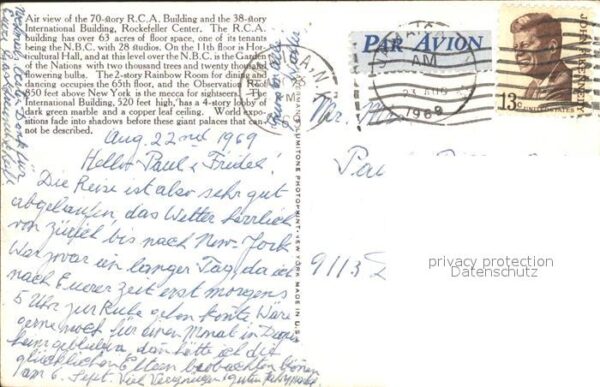 Air view of the 70-story R.C.A. Building and the 38-story
International Building, Rockefeller Center. The R.C.A.
building has over 63 acres of floor space, one of its tenants
being the N.B.C. with 28 studios. On the 11th floor is Hor-
ticultural Hall, and at this level over the N.B.C. is the Garden
of the Nations with two thousand trees and twenty thousand
flowering bulbs. The 2-story Rainbow Room for dining and
dancing occupies the 65th floor, and the Observation Roof
850 feet above New York is the mecca for sightseers. The
International Building, 520 feet high, has a 4-story lobby of
dark green marble and a copper leaf ceiling. World expo-
sitions fade into shadows before these giant palaces that can-
not be described.
Aug. 22nd 1969
Hello Paul & Friedel!
Die Reise ist also sehr gut
abgelaufen, das Wetter herrlich
von Zürich bis nach New-York
War zwar ein langer Tag, da ich
nach Eurer Zeit erst morgens
5 Uhr zur Ruhe gehen konnte Wäre
gerne noch für einen Monat in
heim geblieben, dann hätte ich die
glücklichen Eltern beobachten können
am 6. Sept. Viel Vergnügen
PAR AVION
AM
1969
JOHN F. KENNEDY
13c
UNITED STATES
LUMITONE PHOTOPRINT • NEW YORK MADE IN U.S.A.
Mr.
Pa
9113
privacy protection
Datenschutz